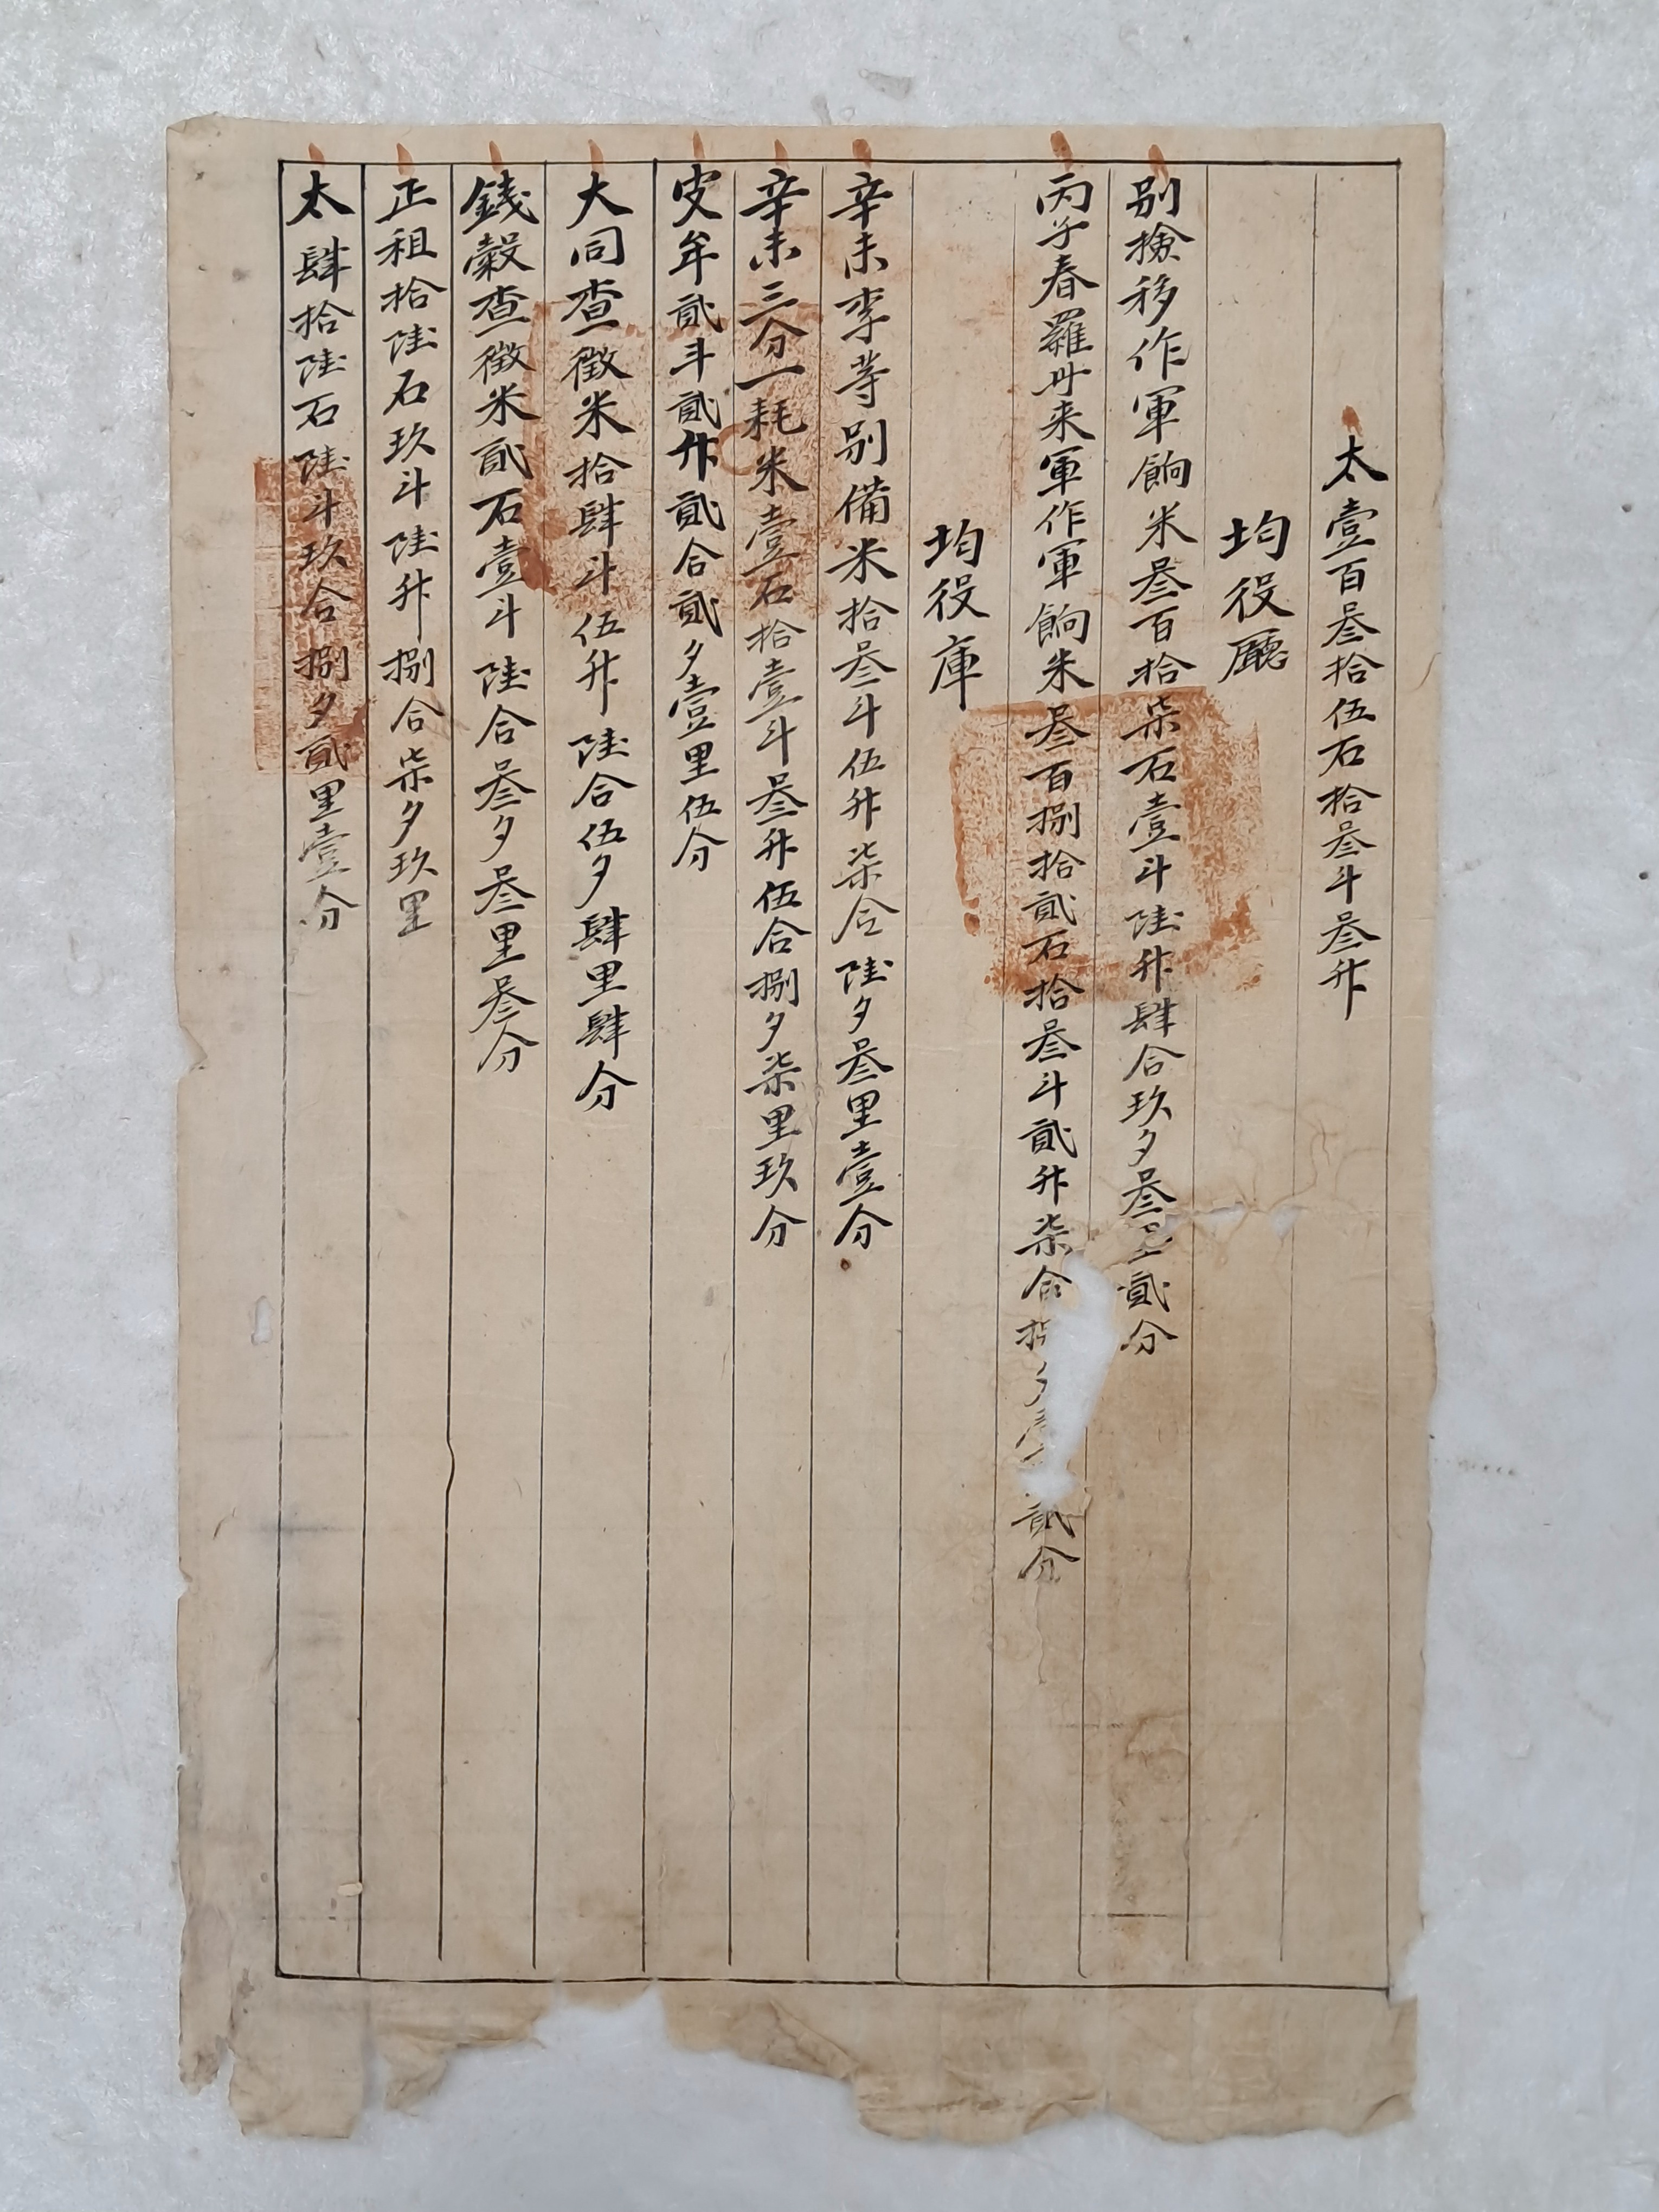 太壹百叄拾伍石拾叄斗叄升
均役廳
別檢移作軍餉米叄百拾柒石壹斗陸升肆合玖夕叄里貳分
丙子春羅卅來軍作軍餉米叄百捌拾貳石拾叄斗貳升柒合夕貳分
均役庫
辛未李等別備米拾叄斗伍升柒合陸夕叄里壹分
辛未三分一耗米壹石拾壹斗叄升伍合捌夕柒里玖分
皮牟貳斗貳升貳合貳夕壹里伍分
大同查徵米拾肆斗伍升陸合伍夕肆里肆分
錢穀查徵米貳石壹斗陸合叄夕叄里叄分
正租拾陸石玖斗陸升捌合柒夕玖里
太肆拾陸石陸斗玖合捌夕貳里壹分